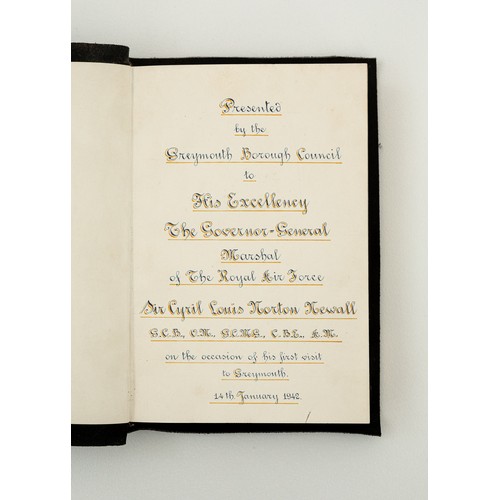 Presented
by the
Greymouth Borough Council
to
His Excellency
The Governor-General
Marshal
of The Royal Air Force
Sir Cyril Louis Norton Newall
G.C.B., O.M., G.C.M.G., C.B.E., A.M.
on the occasion of his first visit
to Greymouth.
14th January 1942.